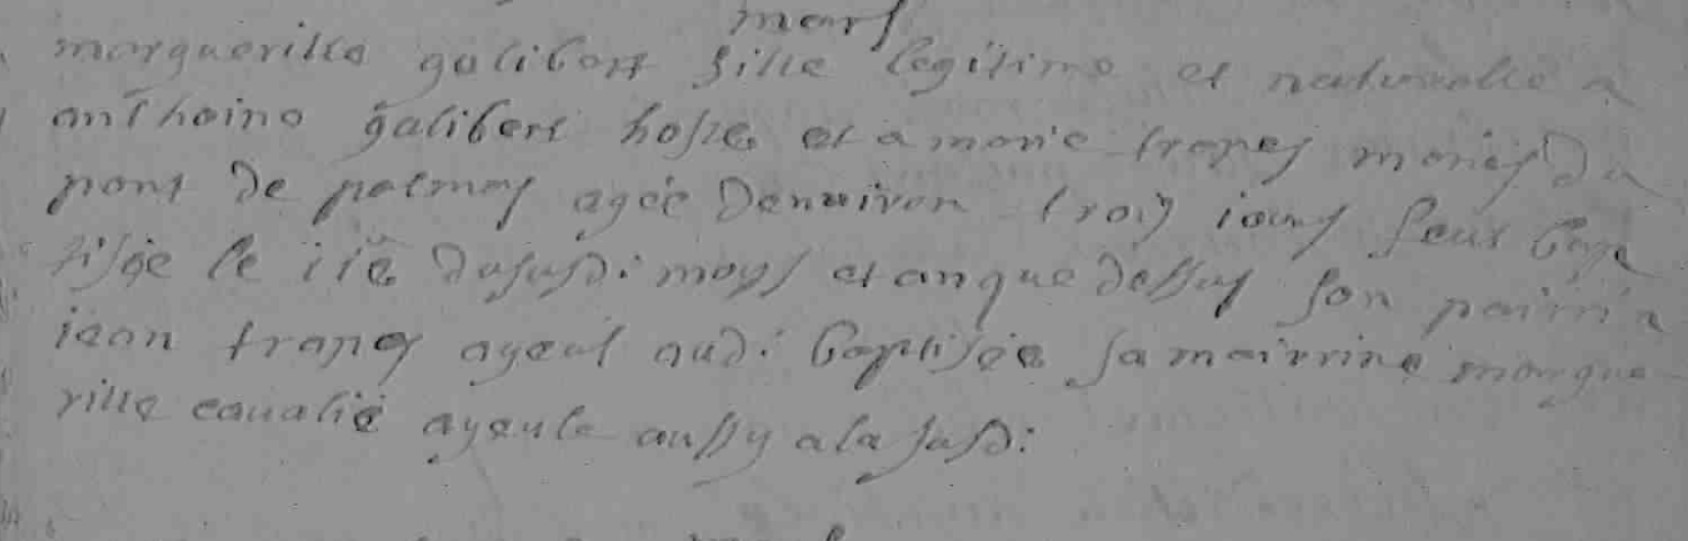 mars
margueritte galibert fille legitime et naturelle a
anthoine galibert hoste et a marie trapes mariés du
pont de palmas agée denuiron trois iours feut bap
tisée le 11e dususdi: moys et an que dessus son pairin
iean trapes ayeul audi: baptisée sa mairrine margue
ritte caualié ayeule aussy a la susdi: